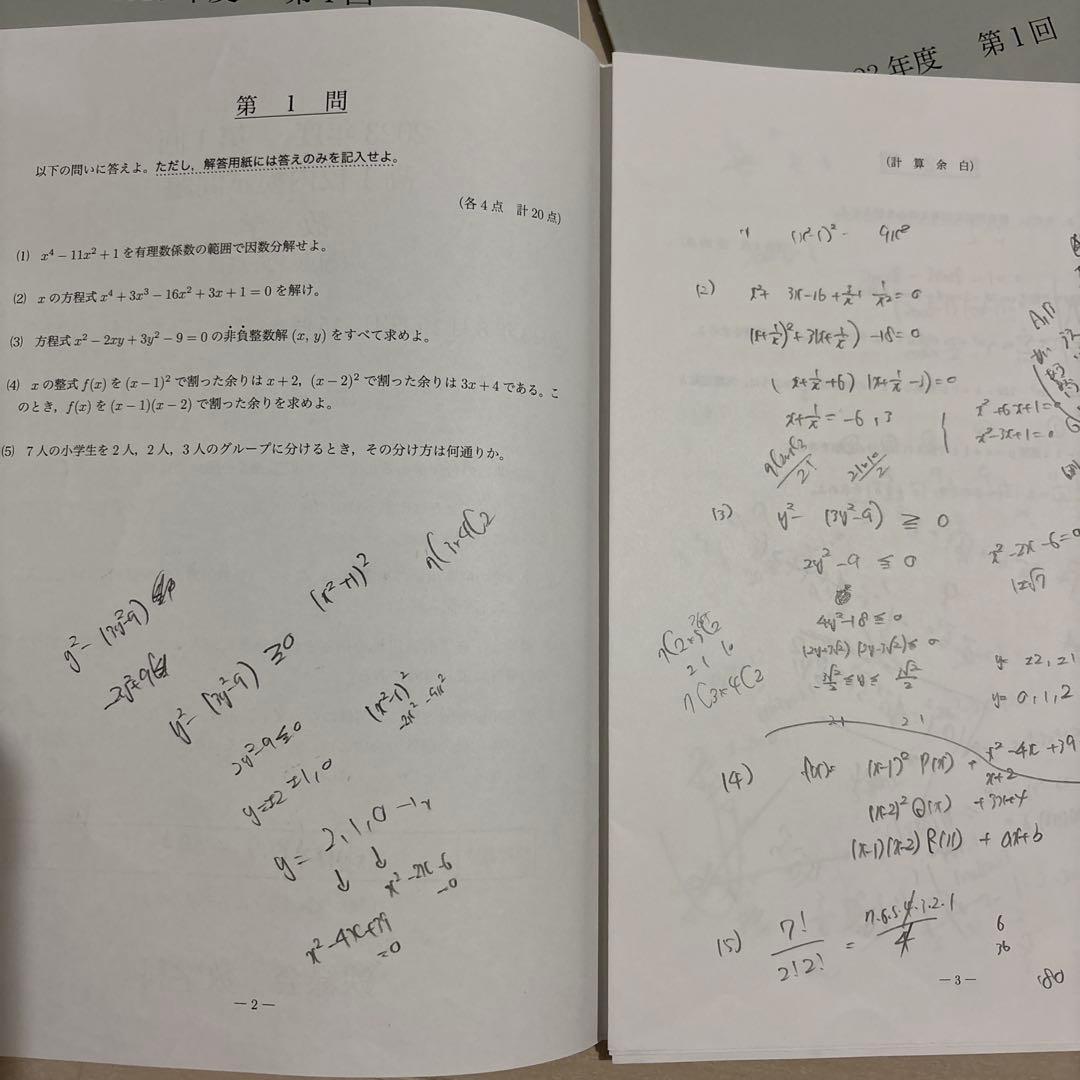 年度 第1回
年度 第1回
第 1 問
以下の問いに答えよ。ただし，解答用紙には答えのみを記入せよ。
(各4点 計20点)
(1) x⁴－11x²＋1を有理数係数の範囲で因数分解せよ。
(2) xの方程式x⁴＋3x³－16x²＋3x＋1＝0を解け。
(3) 方程式x²－2xy＋3y²－9＝0の非負整数解(x, y)をすべて求めよ。
(4) xの整式f(x)を(x－1)²で割った余りはx＋2，(x－2)²で割った余りは3x＋4である。こ
のとき，f(x)を(x－1)(x－2)で割った余りを求めよ。
(5) 7人の小学生を2人，2人，3人のグループに分けるとき，その分け方は何通りか。
(x²+1)²
y²-(3y²-9)
y²-(3y²-9) ≧0
(x²-1)²
-2x²-9x²
2y²-9≦0
y=±2 ±1,0
y= 2,1,0
↓ ↓
x²-2x-6
=0
x²-4x+39
=0
―2―
(計 算 余 白)
(x²-1)²- 9x²
(2) x²+ 3x-16+3/x+1/x²=0
(x+1/x)²+3(x+1/x)-18=0
(x+1/x+6)(x+1/x-3)=0
x+1/x=-6,3
x²+6x+1=0
x²-3x+1=0
(3) y²-(3y²-9)≧0
2y²-9≦0
x²-2x-6=0
1±√7
4y²-18≦0
(2y+3√2)(2y-3√2)≦0
-3√2/2≦y≦3√2/2
y= ±2,±1
y= 0,1,2
7C3×4C2
x²-4x+39
(4) f(x)= (x-1)²P(x)+x+2
(x-2)²Q(x)+3x+4
(x-1)(x-2)R(x)+ax+b
(5) 7!/2!2! = 7·6·5·4·3·2·1/4
6
36
―3―